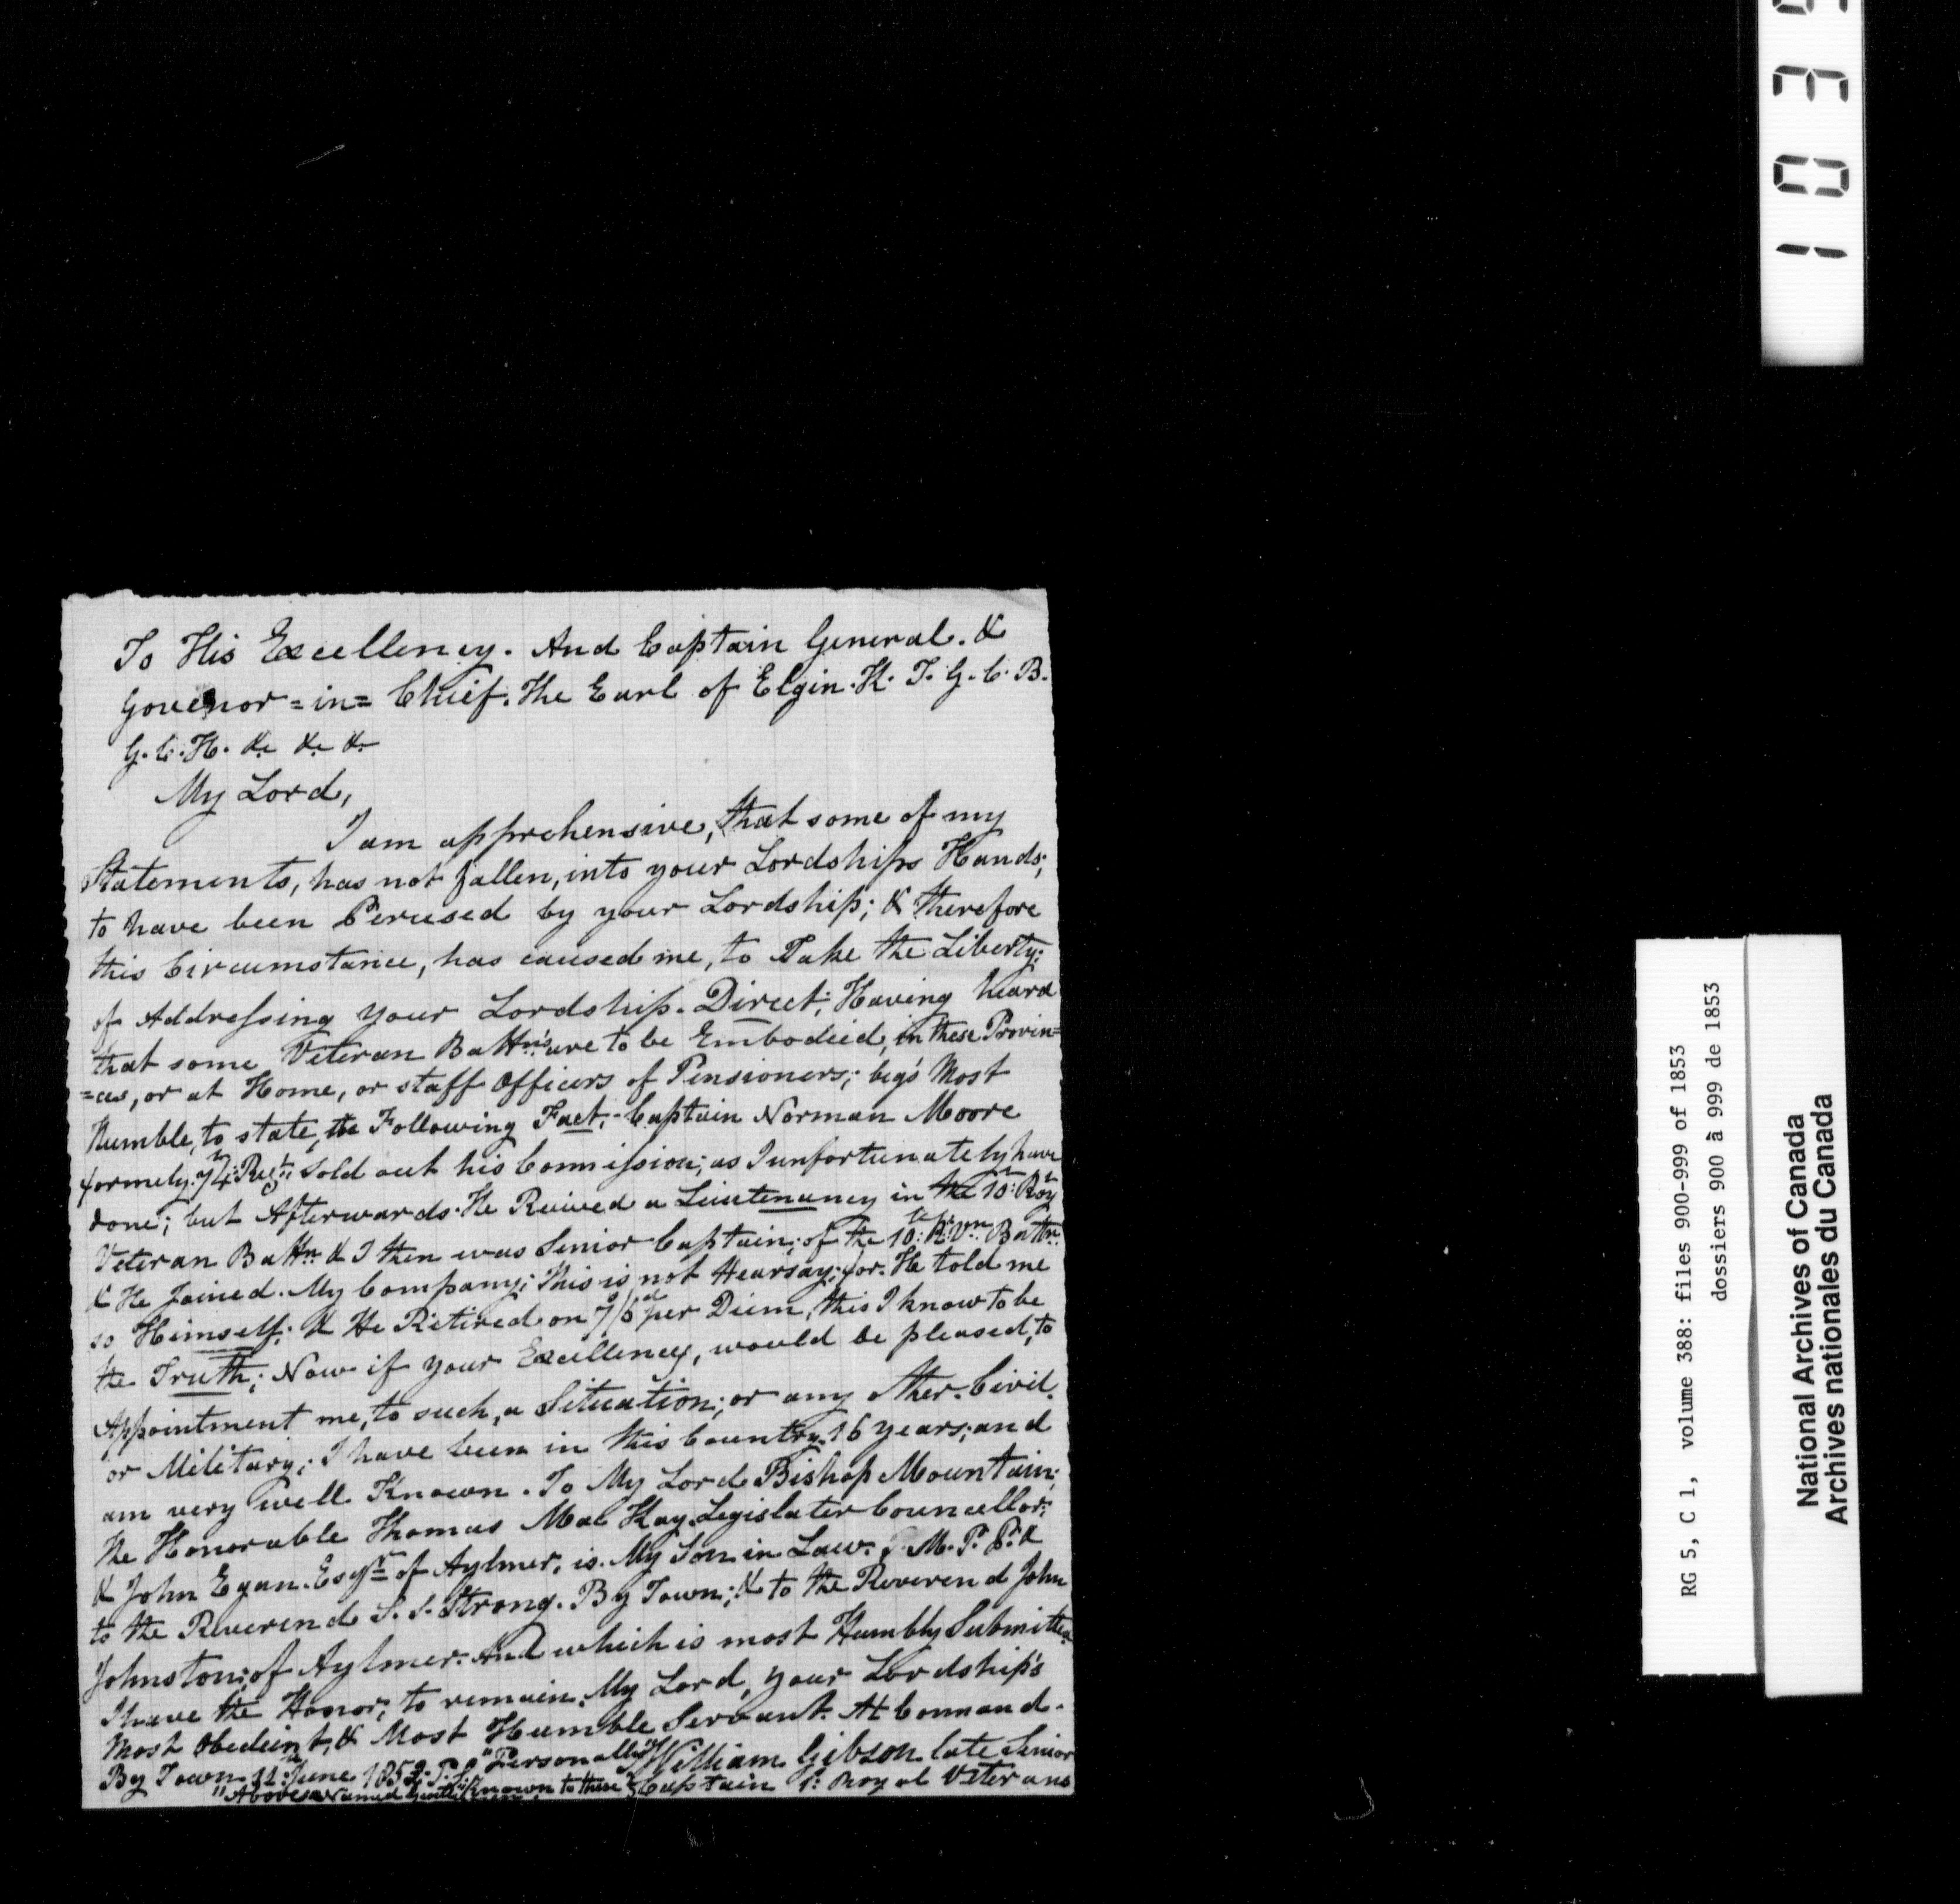 To His Excellency. And Captain General. &
Govenor = in = Chief. The Earl of Elgin. K. T. G. C. B.
G. C. H. &c &c &c
My Lord,
I am apprehensive, that some of my
Statements, has not fallen, into your Lordships Hands;
to have been Perused by your Lordship; & therefore
this Circumstance, has caused me, to Take the Liberty;
of Addressing your Lordship. Direct; Having heard
that some Veteran Battns. are to be Embodeid, in these Provin=
=ces, or at Home, or staff Officers of Pensioners; beg's Most
Humble, to state, the Following Fact; Captain Norman Moore
formely. 74th Regt. sold out his Commission; as I unfortunately have
done; but Afterwards. He Reuived a Leiutenancy in the 10th Roy
Veteran Battn. & I then was Senior Captain; of the 10th Rl. Vn. Battn.
& He Joined. My Company; This is not Hearsay; for. He told me
so Himself; & He Retired on 7s/6d per Diem, this I know to be
the Truth; Now if your Excellency, would be pleased, to
Appointment me, to such, a Situation; or any other. Civil.
or Military; I have been in this Country. 16 years; and
am very well Known. To My Lord Bishop Mountain;
the Honorable Thomas Mac Kay. Legislater Councellor;
& John Egan. Esqr. of Aylmer, is. My Son in Law. M. P. P. &
to the Reverend S. S. Strong. By Town; & to the Reverend John
Johnston; of Aylmer. And which is most Humbly Submitted
I have the Honor; to remain. My Lord, your Lordship's
Most Obedeint, & Most Humble Servant. At Command.
By Town 11th June 1853. P. S. "Personally William Gibson late Senior
"Above Named Gentlemen Known to these Captain 1st Royal Veterans
1 0 3
RG 5, C 1, volume 388: files 900-999 of 1853
dossiers 900 à 999 de 1853
National Archives of Canada
Archives nationales du Canada